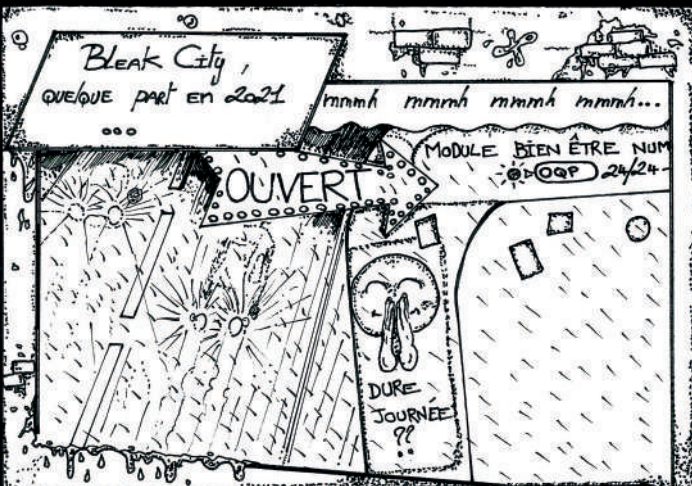 Bleak City,
QUELQUE PART EN 2021
...
mmmh mmmh mmmh mmmh...
OUVERT
MODULE BIEN ÊTRE NUM
OQP 24/24
DURE
JOURNÉE
??